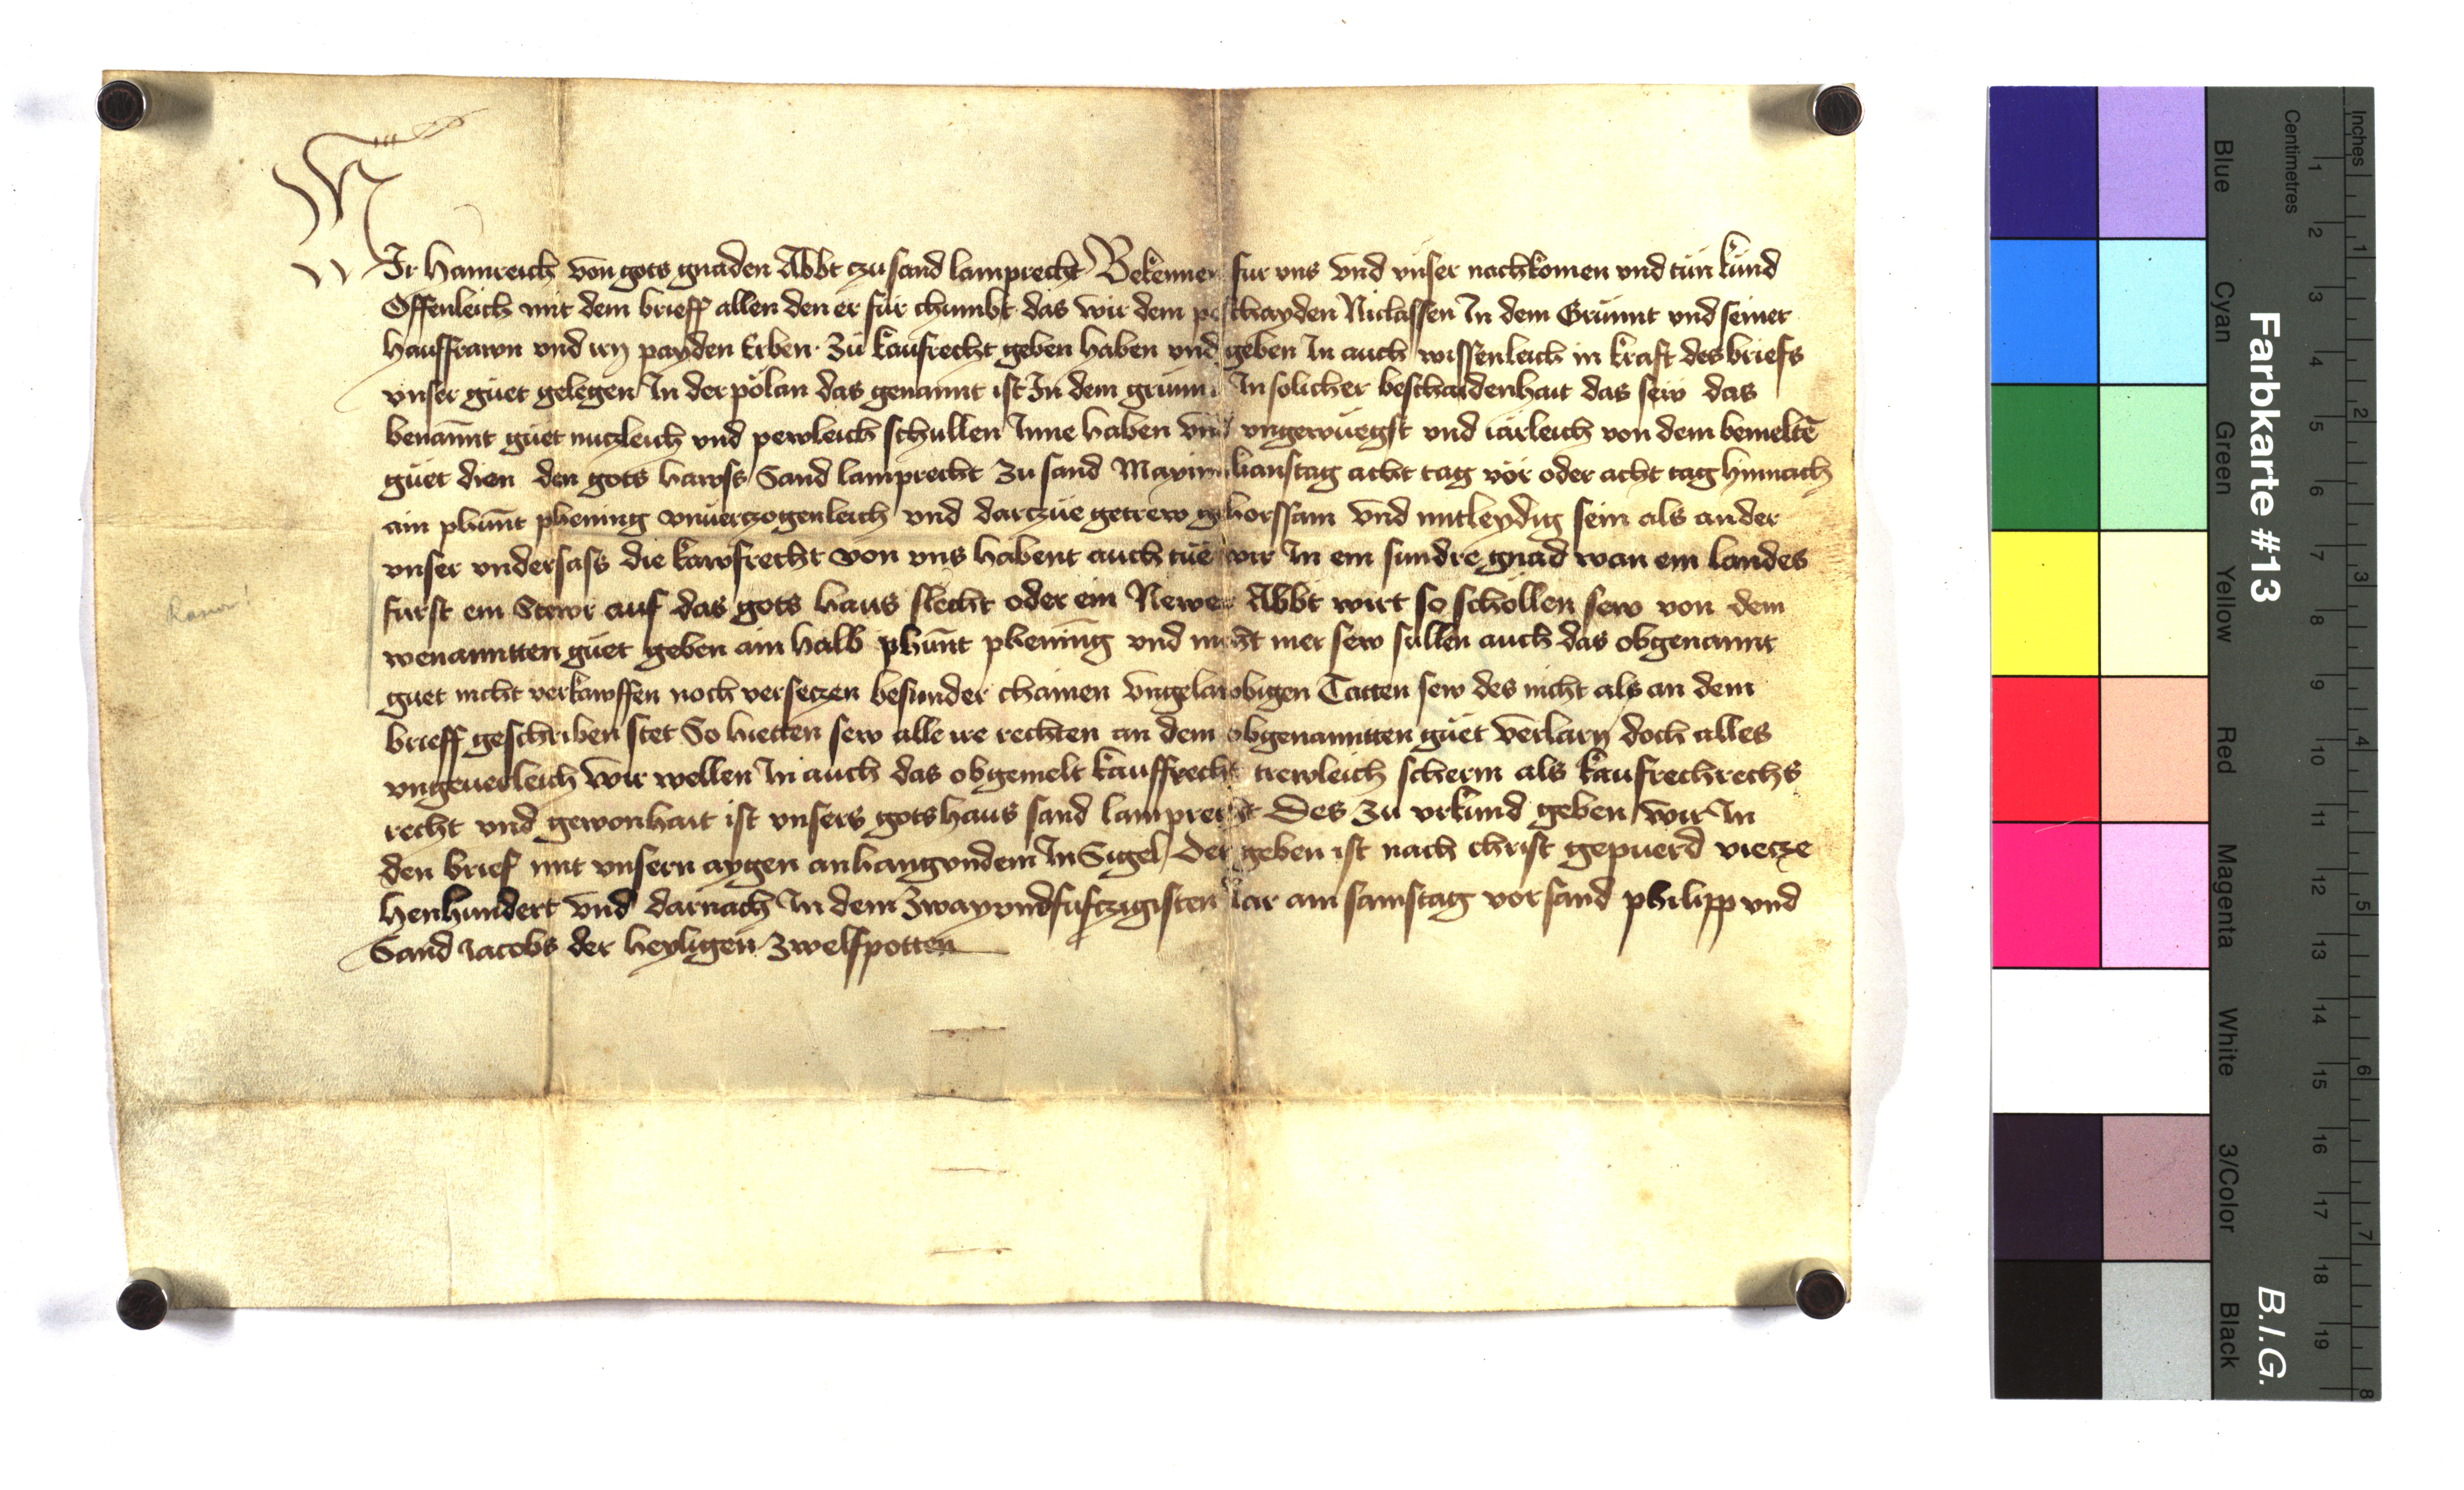 WIr Hainreich von gots gnaden Abbt czu sand lamprecht Bekennen fur vns vnd vnser nachkomen vnd tun kund
Offenleich mit dem brieff allen den er fur chumbt das wir dem peschayden Niclassen In dem Grunnt vnd seiner
hausfrawn vnd irn payden Erben Zu kaufrecht geben haben vnd geben In auch wissenleich in kraft des briefs
vnser guet gelegen In der polan das genannt ist In dem grunnt In solicher beschaidenhait das sew das
benannt guet nutzleich vnd pewleich schullen Inne haben vnd vngewuegst vnd iarleich von dem bemelte
guet dien den gots hawss Sand lamprecht Zu sand Maximilianstag acht tag vor oder acht tag hinnach
ain phunt phening vnuerczogenleich vnd darczue getrew gehorssam vnd mitleydig sein als ander
vnser vndersass die kawfrecht von vns habent auch tue wir In ein sundre gnad wan ein landes
furst ein Stewr auf das gots haus slecht oder ein Newer Abbt wirt so schollen sew von dem
wenanntten guet geben ain halb phunt phening vnd nicht mer sew sullen auch das obgenannt
guet nicht verkawffen noch versetzen besunder chainen vngelawbigen Tatten sew des nicht als an dem
brieff geschriben stet So hietten sew alle ire rechten an dem obgenanntten guet verlarn doch alles
vngeuerleich wir wellen In auch das obgemelt kauffrecht trewleich scherm als kaufrechrechs
recht vnd gewonhait ist vnsers gotshaus sand lamprecht Des Zu vrkund geben wir In
den brief mit vnsern aygen anhangvndem InSigel Der geben ist nach christ gepuerd viercze
henhundert vnd darnach In dem Zwayvndfufczigisten Iar am samstag vor sand philipp vnd
Sand Jacobs der heyligen Zwelfpotten
Farbkarte #13
B.I.G.
Inches 1 2 3 4 5 6 7 8
Centimetres 1 2 3 4 5 6 7 8 9 10 11 12 13 14 15 16 17 18 19
Blue Cyan Green Yellow Red Magenta White 3/Color Black